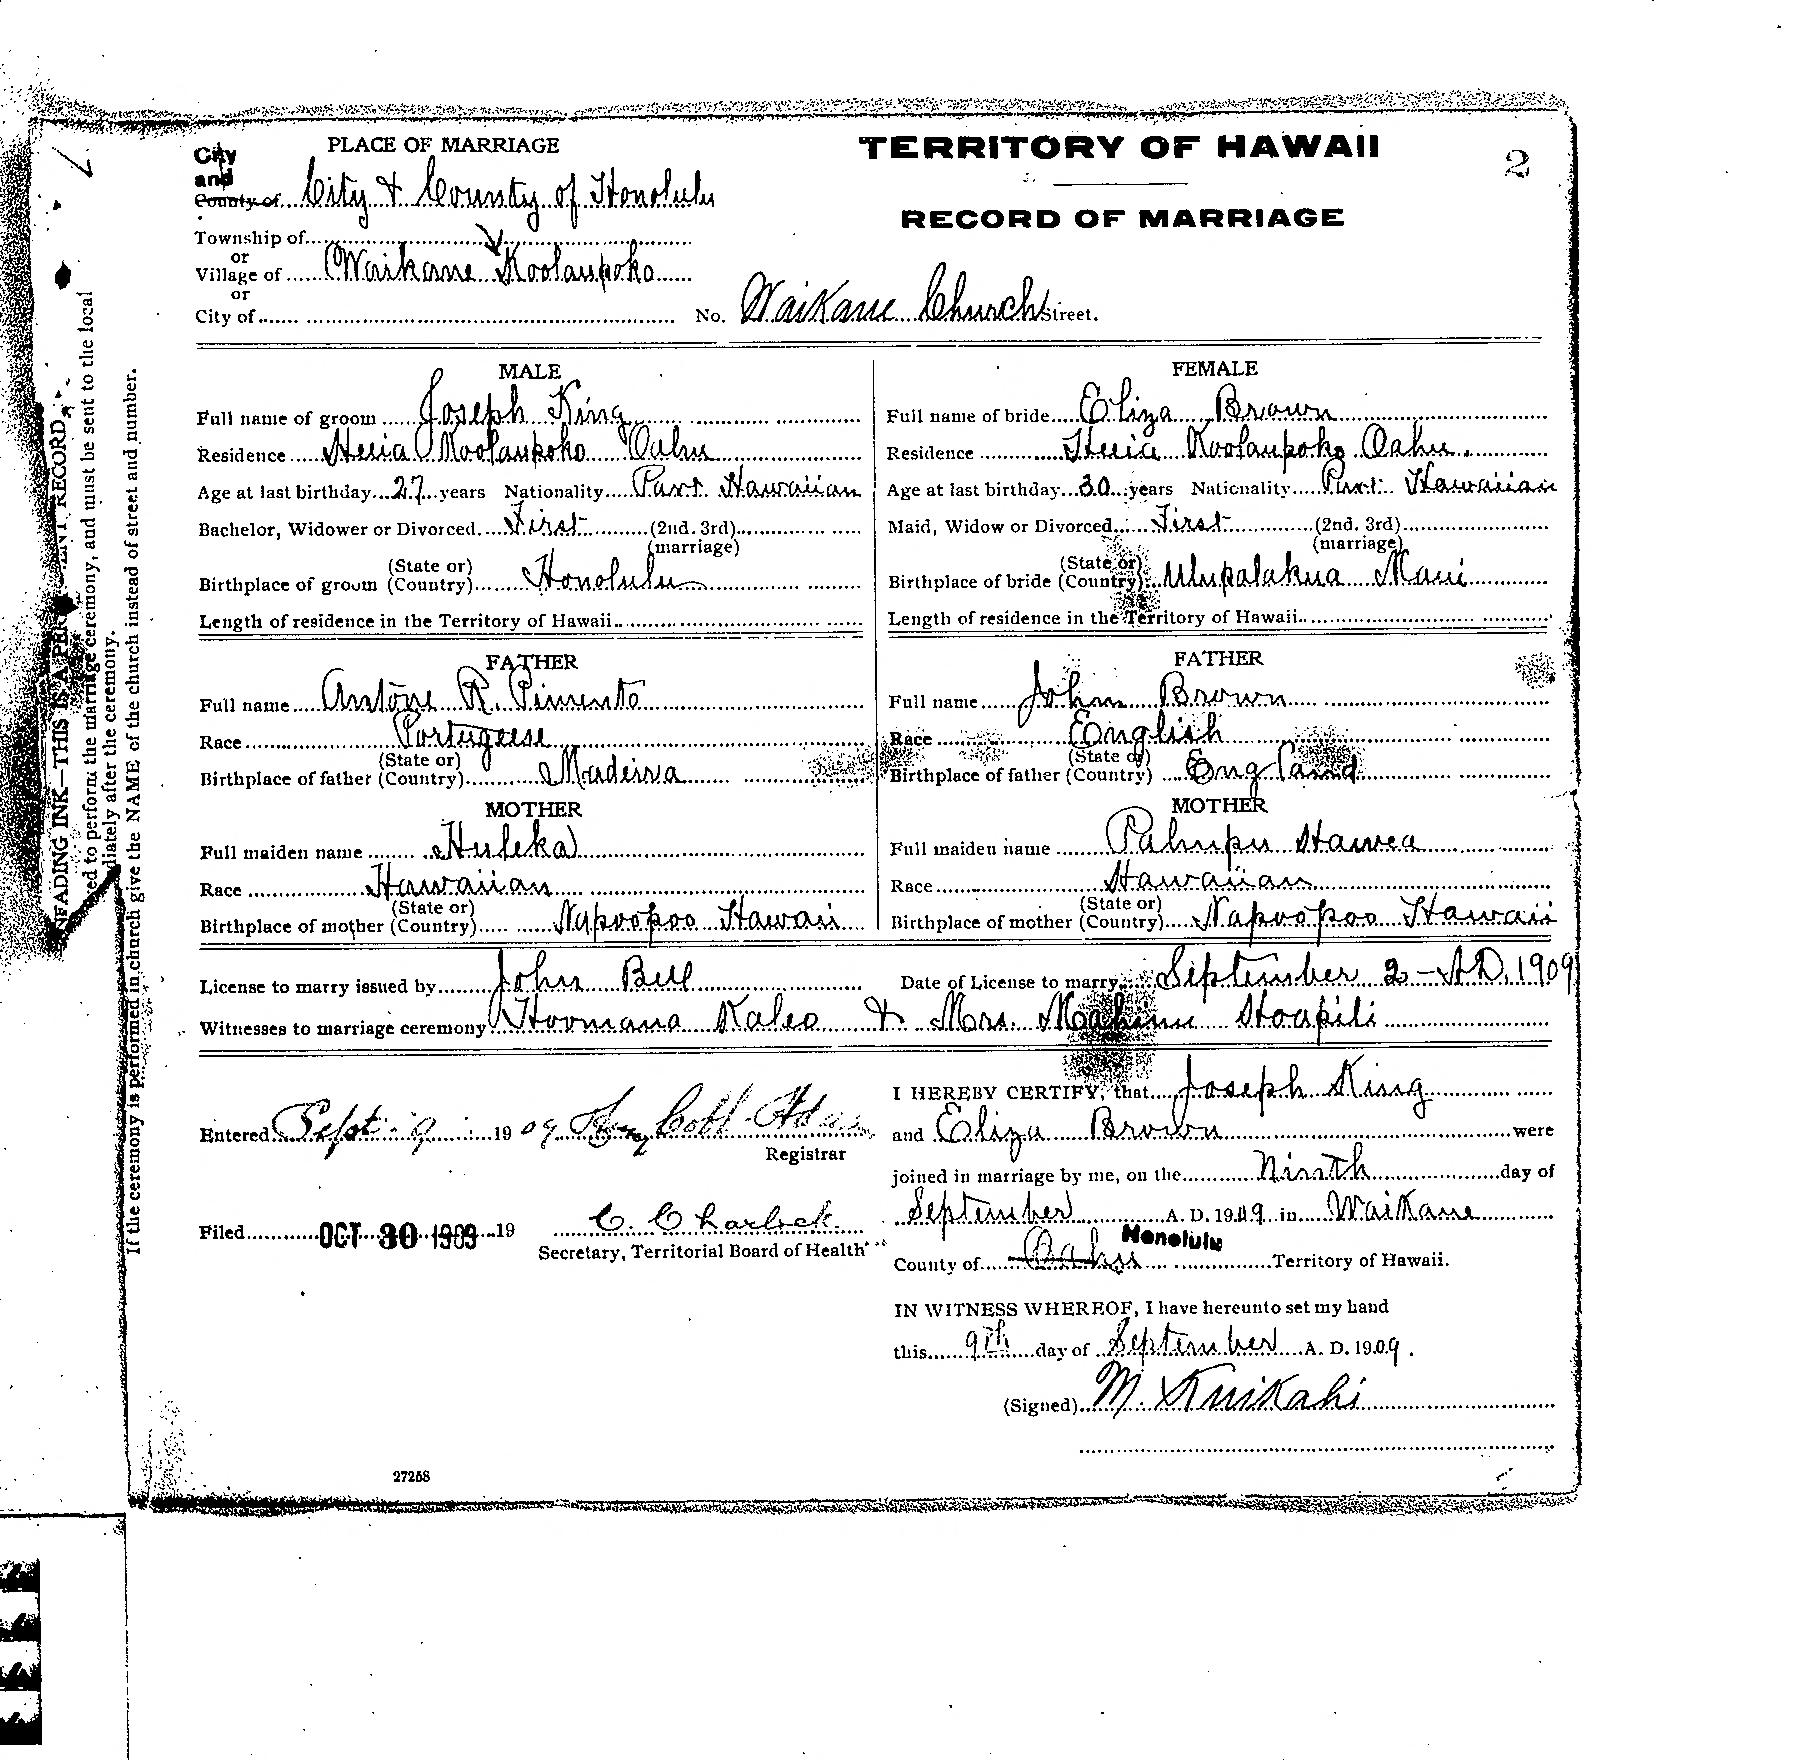 PLACE OF MARRIAGE
City
and
County of City & County of Honolulu
Township of
or
Village of Waikane Koolaupoko
or
City of
TERRITORY OF HAWAII
2
RECORD OF MARRIAGE
No. Waikane Church Street.
MALE
Full name of groom Joseph King
Residence Heeia Koolaupoko Oahu
Age at last birthday 27 years Nationality Part Hawaiian
Bachelor, Widower or Divorced First (2nd. 3rd)
(marriage)
(State or)
Birthplace of groom (Country) Honolulu
Length of residence in the Territory of Hawaii
FATHER
Full name Antone R. Pimento
Race Portuguese
(State or)
Birthplace of father (Country) Madeira
MOTHER
Full maiden name Huleka
Race Hawaiian
(State or)
Birthplace of mother (Country) Napoopoo Hawaii
FEMALE
Full name of bride Eliza Brown
Residence Heeia Koolaupoko Oahu.
Age at last birthday 30 years Nationality Part Hawaiian
Maid, Widow or Divorced First (2nd. 3rd)
(marriage)
(State or)
Birthplace of bride (Country) Ulupalakua Maui
Length of residence in the Territory of Hawaii
FATHER
Full name John Brown
Race English
(State or)
Birthplace of father (Country) England
MOTHER
Full maiden name Pahupu Hawea
Race Hawaiian
(State or)
Birthplace of mother (Country) Napoopoo Hawaii
License to marry issued by John Bell Date of License to marry September 2 - A.D. 1909
Witnesses to marriage ceremony Hoomana Kaleo & Mrs. Mahinu Hoapili
Entered Sept. 9 1909
Registrar
Filed OCT 30 1909 19 C. Charlock
Secretary, Territorial Board of Health
I HEREBY CERTIFY, that Joseph King
and Eliza Brown were
joined in marriage by me, on the Ninth day of
September A. D. 1909 in Waikane
County of Oahu Honolulu Territory of Hawaii.
IN WITNESS WHEREOF, I have hereunto set my hand
this 9th day of September A. D. 1909.
(Signed) M. Kuikahi
27258
NFADING INK—THIS IS A PER ENT RECORD
ed to perform the marriage ceremony, and must be sent to the local
diately after the ceremony.
If the ceremony is performed in church give the NAME of the church instead of street and number.